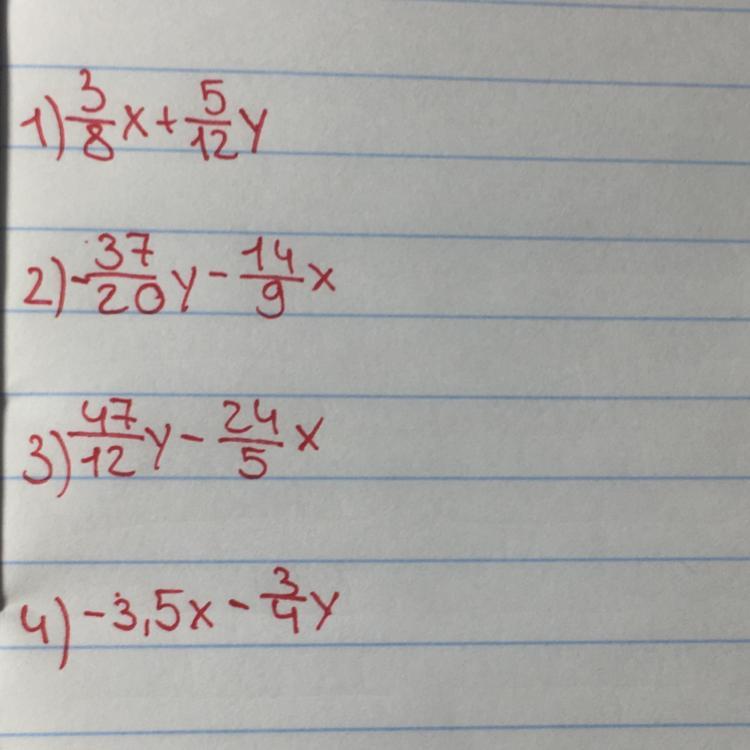 1) 3/8 x + 5/12 y
2) -37/20 y - 14/9 x
3) 47/12 y - 24/5 x
4) -3,5x - 3/4 y